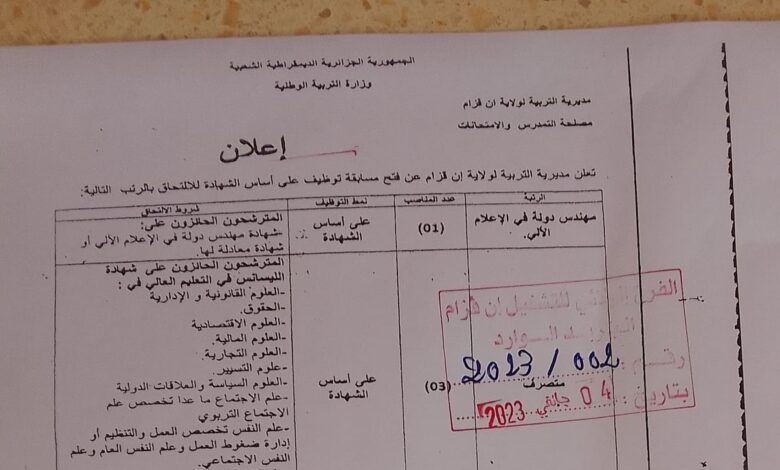 الجمهورية الجزائرية الديمقراطية الشعبية
وزارة التربية الوطنية
مديرية التربية لولاية ان قزام
مصلحة التمدرس والامتحانات
إعلان
تعلن مديرية التربية لولاية إن قزام عن فتح مسابقة توظيف على أساس الشهادة للالتحاق بالرتب التالية:
الرتبة
عدد المناصب
نمط التوظيف
شروط الالتحاق
مهندس دولة في الإعلام
الآلي.
(01)
على أساس
الشهادة
المترشحون الحائزون على:
-شهادة مهندس دولة في الإعلام الآلي أو
شهادة معادلة لها.
متصرف
(03)
على أساس
الشهادة
المترشحون الحائزون على شهادة
الليسانس في التعليم العالي في :
-العلوم القانونية و الإدارية
-الحقوق.
-العلوم الاقتصادية
-العلوم المالية.
-العلوم التجارية.
-علوم التسيير.
-العلوم السياسة والعلاقات الدولية
-علم الاجتماع ما عدا تخصص علم
الاجتماع التربوي
-علم النفس تخصص العمل والتنظيم أو
إدارة ضغوط العمل وعلم النفس العام وعلم
النفس الاجتماعي.
الفرع للتشغيل إن قزام
الوارد
رقم : 2023/002
بتاريخ : 04 جانفي 2023